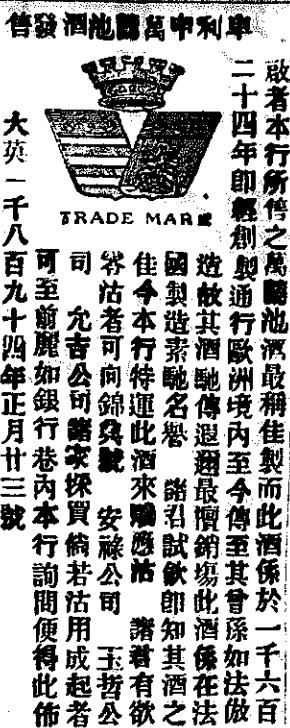 車利申萬池酒發售
TRADE MARK
啟者本行所售之萬池酒最稱佳製而此酒係於一千六百
二十四年即經創製通行歐洲境內至今傳至其曾孫如法倣
造故其酒馳傳遐邇最擅銷塲此酒係在法
國製造素馳名譽 諸君試飲即知其酒之
佳今本行特運此酒來應沽 諸君有欲
沽者可向錦興號 安祿公司 玉哲公
司 允吉公司諸家採買倘若沽用成起者
可至前麗如銀行巷內本行詢問便得此佈
大英一千八百九十四年正月廿三號